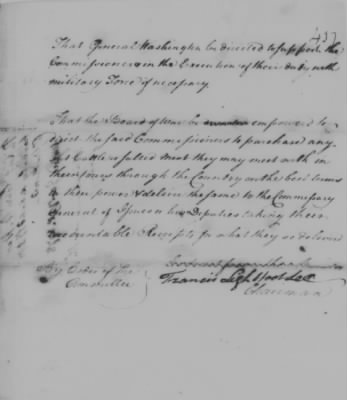 437
That General Washington be directed to support the
Commissioners in the Execution of their duty with
military Force if necessary.
That the Board of War be empowered to
direct the said Commissioners to purchase any
Cattle salted meat they may meet with in
their Tours through the Country on the best terms
in their power & deliver the same to the Commissary
General of Issues or his Deputies taking their
Receipts for what they so delivered
By Order of the
Committee
Francis Lightfoot Lee
Chairman